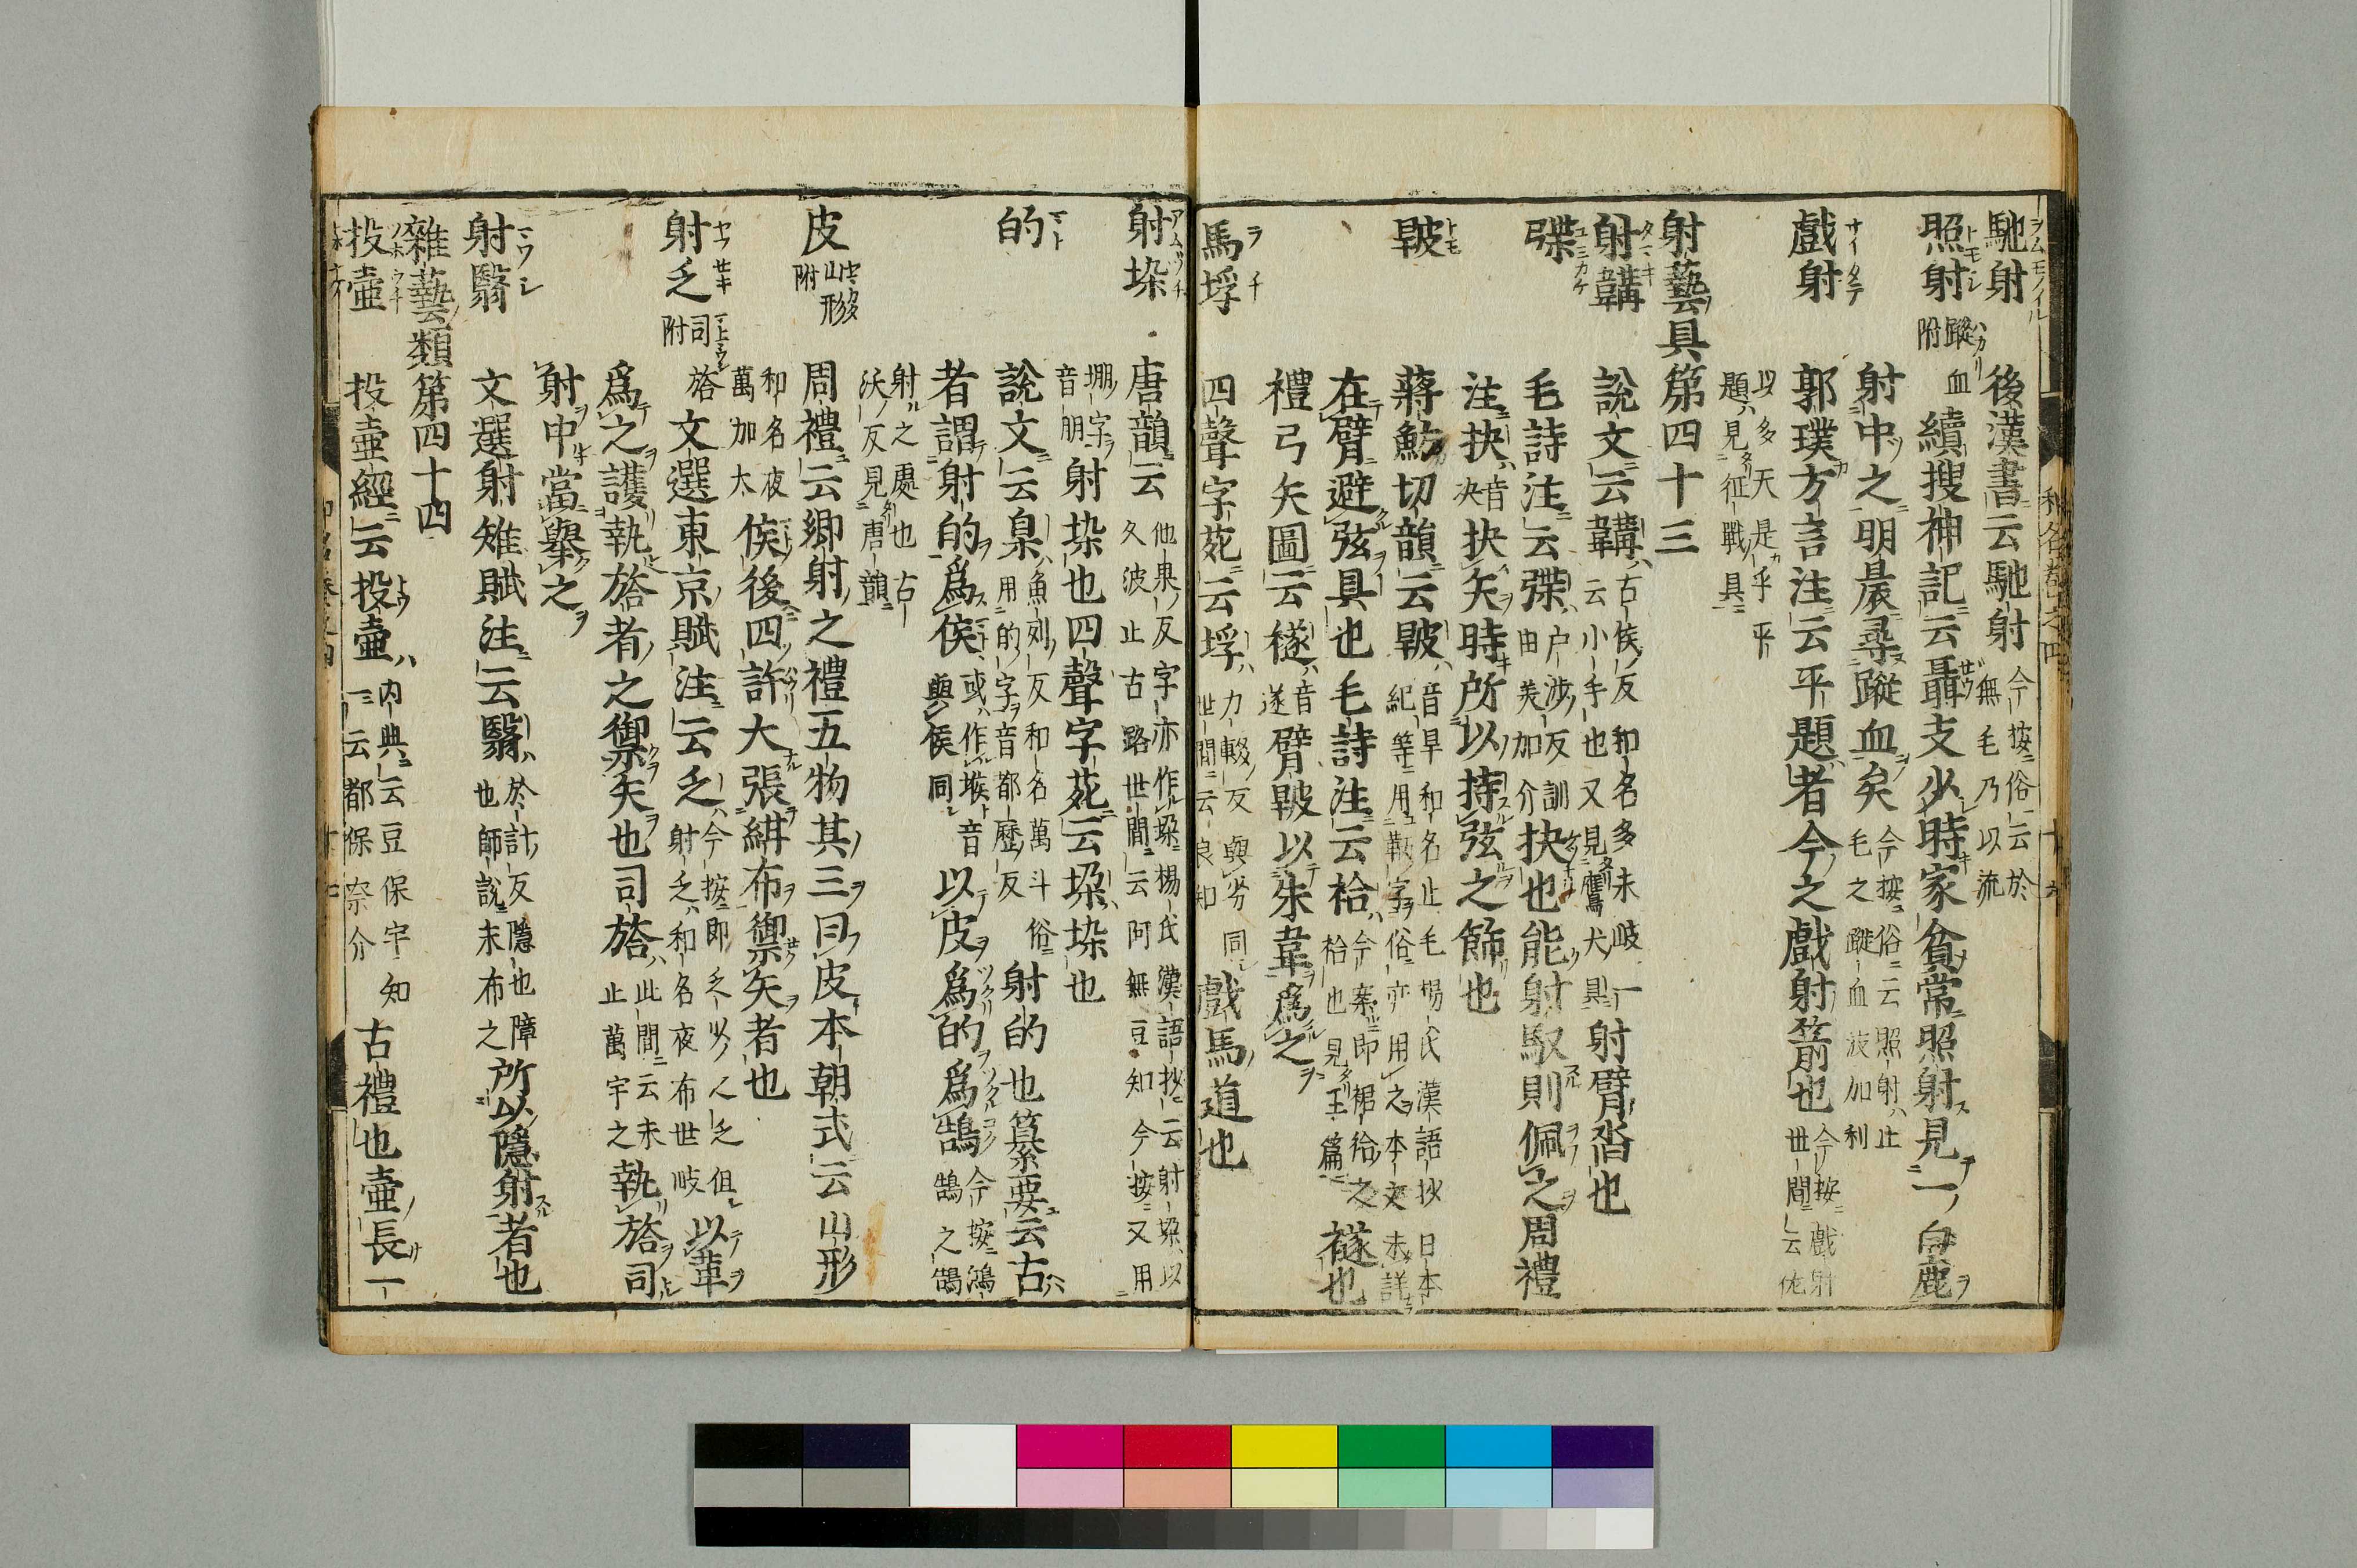 馳射 後漢書云馳射 今按俗云於無毛乃以流
照射 蹤血附 續搜神記云聶支少時家貧常照射見一白鹿
射中之明晨尋蹤血矣 今按俗云照射止毛之蹤血波加利
戲射 郭璞方言注云平題者今之戲射箭也 今按戲射世間云佐
以多天是乎平題見征戰具
射藝具第四十三
射韝 說文云韝 古侯反和名多末岐一云小手也又見鷹犬具 射臂沓也
弽 毛詩注云弽 戶渉反訓由美加介 抉也能射馭則佩之周禮
注抉 音決 抉矢時所以持弦之飾也
䩝 蔣魴切韻云䩝 音旱和名止毛楊氏漢語抄日本紀等用鞆字俗亦用之本文未詳
在臂避弦具也毛詩注云袷 今案即裙袷之袷也見王篇 襚也
禮弓矢圖云襚 音遂 臂䩝以朱韋爲之
馬埒 四聲字苑云埒 力輟反與劣同世間云良知 戲馬道也
射垜 唐韻云 他果反字亦作垛楊氏漢語抄云射垛以久波止古路世間云阿無豆知今按又用
堋字音朋 射垜也四聲字苑云垛垜也
的 說文云臬 魚列反和名萬斗俗用的字音都歷反 射的也纂要云古
者謂射的爲侯 或作堠音與侯同 以皮爲的爲鵠 今按鴻鵠之鵠
射之處也古沃反見唐韻
皮 山形附 周禮云鄉射之禮五物其三曰皮本朝式云山形
和名夜萬加太 侯後四許大張紺布禦矢者也
射乏 司旍附 文選東京賦注云乏 今按即乏少人之乏但射乏和名夜布世岐 以革
爲之護執旍者之禦矢也司旍 此間云末止萬宇之 執旍司
射中當舉之
射翳 文選射雉賦注云翳 於計反隱也障也師說末布之 所以隱射者也
雜藝類第四十四
投壺 投壺經云投壺 內典云豆保宇知一云都保奈介 古禮也壺長一